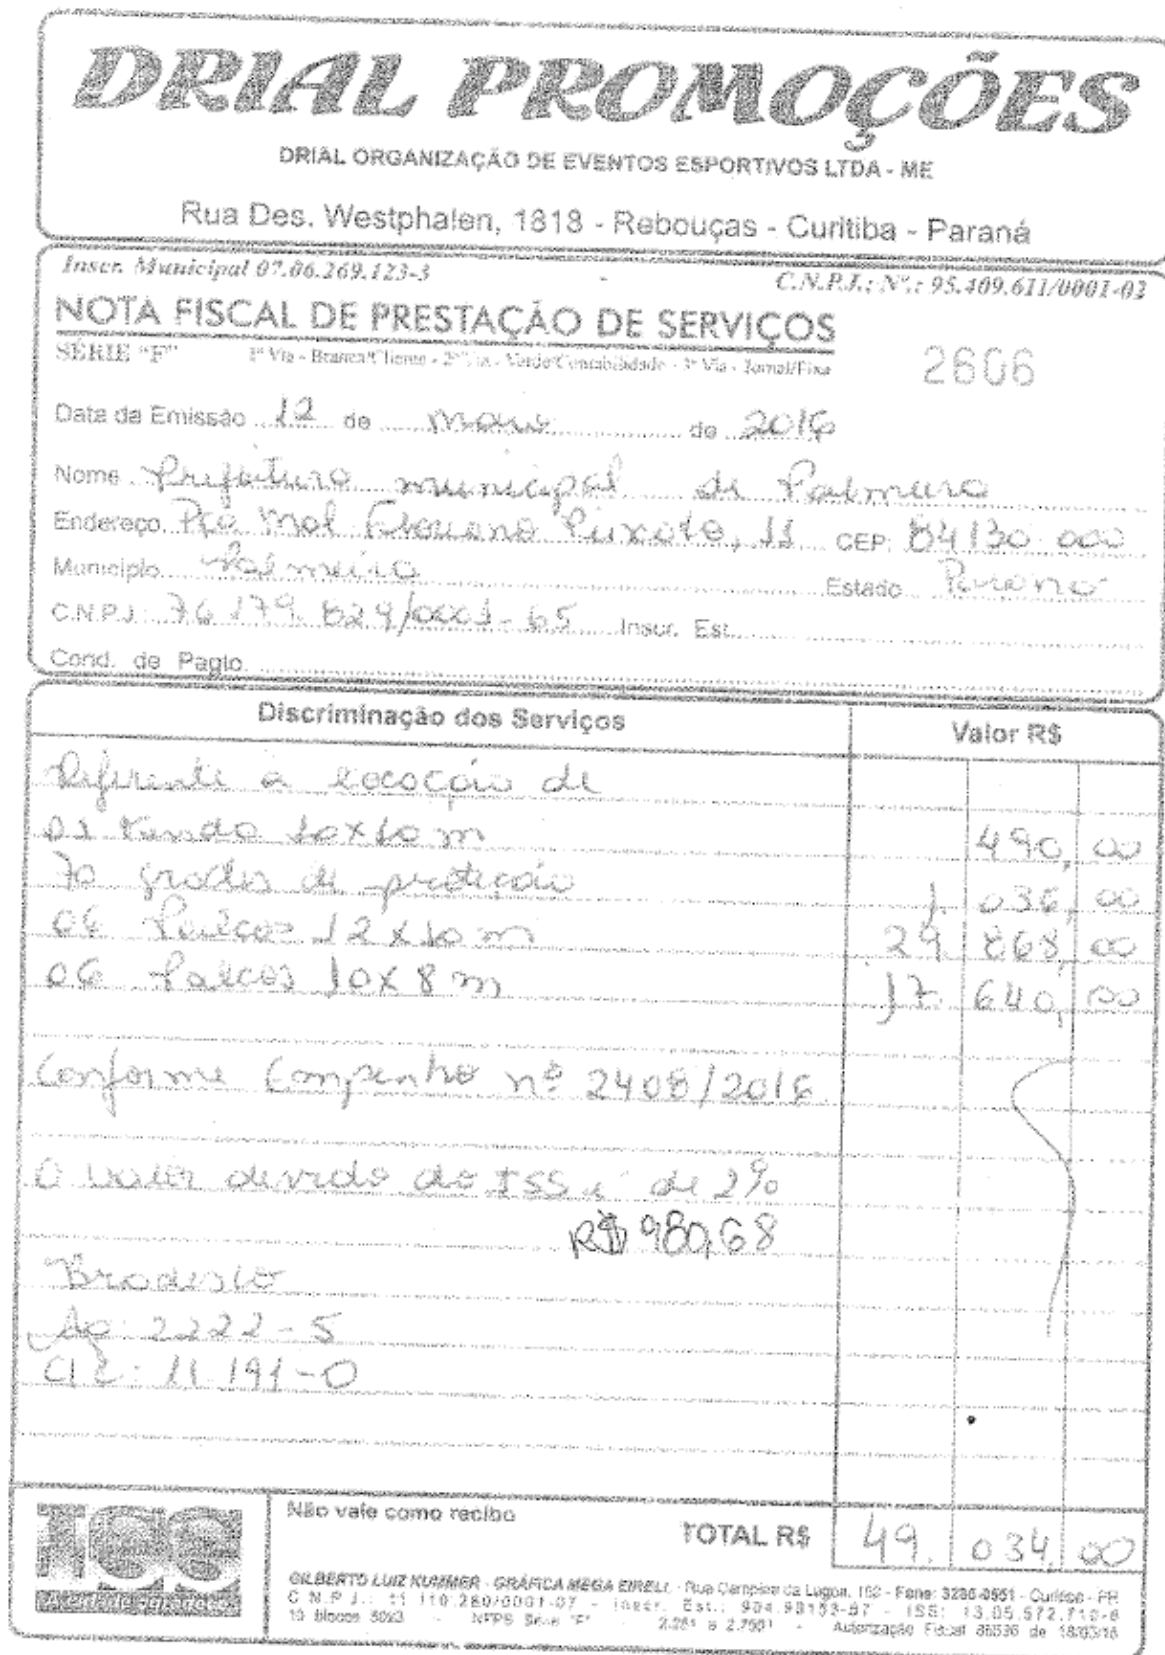 DRIAL PROMOÇÕES
DRIAL ORGANIZAÇÃO DE EVENTOS ESPORTIVOS LTDA - ME
Rua Des. Westphalen, 1818 - Rebouças - Curitiba - Paraná
Inscr. Municipal 07.06.269.123-3 C.N.P.J.: Nº.: 95.409.611/0001-03
NOTA FISCAL DE PRESTAÇÃO DE SERVIÇOS
SÉRIE "F" 1ª Via - Branca/Cliente - 2ª Via - Verde/Contabilidade - 3ª Via - Jornal/Fixa 2606
Data da Emissão 12 de maio de 2016
Nome Prefeitura municipal de Palmeira
Endereço Pça Mal Floriano Peixoto, 11 CEP: 84130 000
Município Palmeira Estado Paraná
C.N.P.J.: 76 179. 829/0001-65 Inscr. Est.
Cond. de Pagto.
Discriminação dos Serviços Valor R$
Referente a locação de
01 tenda 10x10 m 490,00
70 grades de proteção 1.036,00
06 Palcos 12 x 10 m 29.868,00
06 Palcos 10x8 m 17.640,00
Conforme Empenho nº 2408/2016
O valor devido do ISS é de 2%
R$ 980,68
Bradesco
Ag: 2222-5
C/C: 11.191-0
ISS Não vale como recibo TOTAL R$ 49.034,00
GILBERTO LUIZ KUMMER - GRÁFICA MEGA EIRELI - Rua Campina da Lagoa, - Fone: 3286-0551 - Curitiba - PR
C.N.P.J.: 11.110.280/0001-07 - Inscr. Est.: - ISS: 13.05.572.710-8
10 blocos 50x3 - NFPS Série "F" - - Autorização Fiscal de 18/03/16